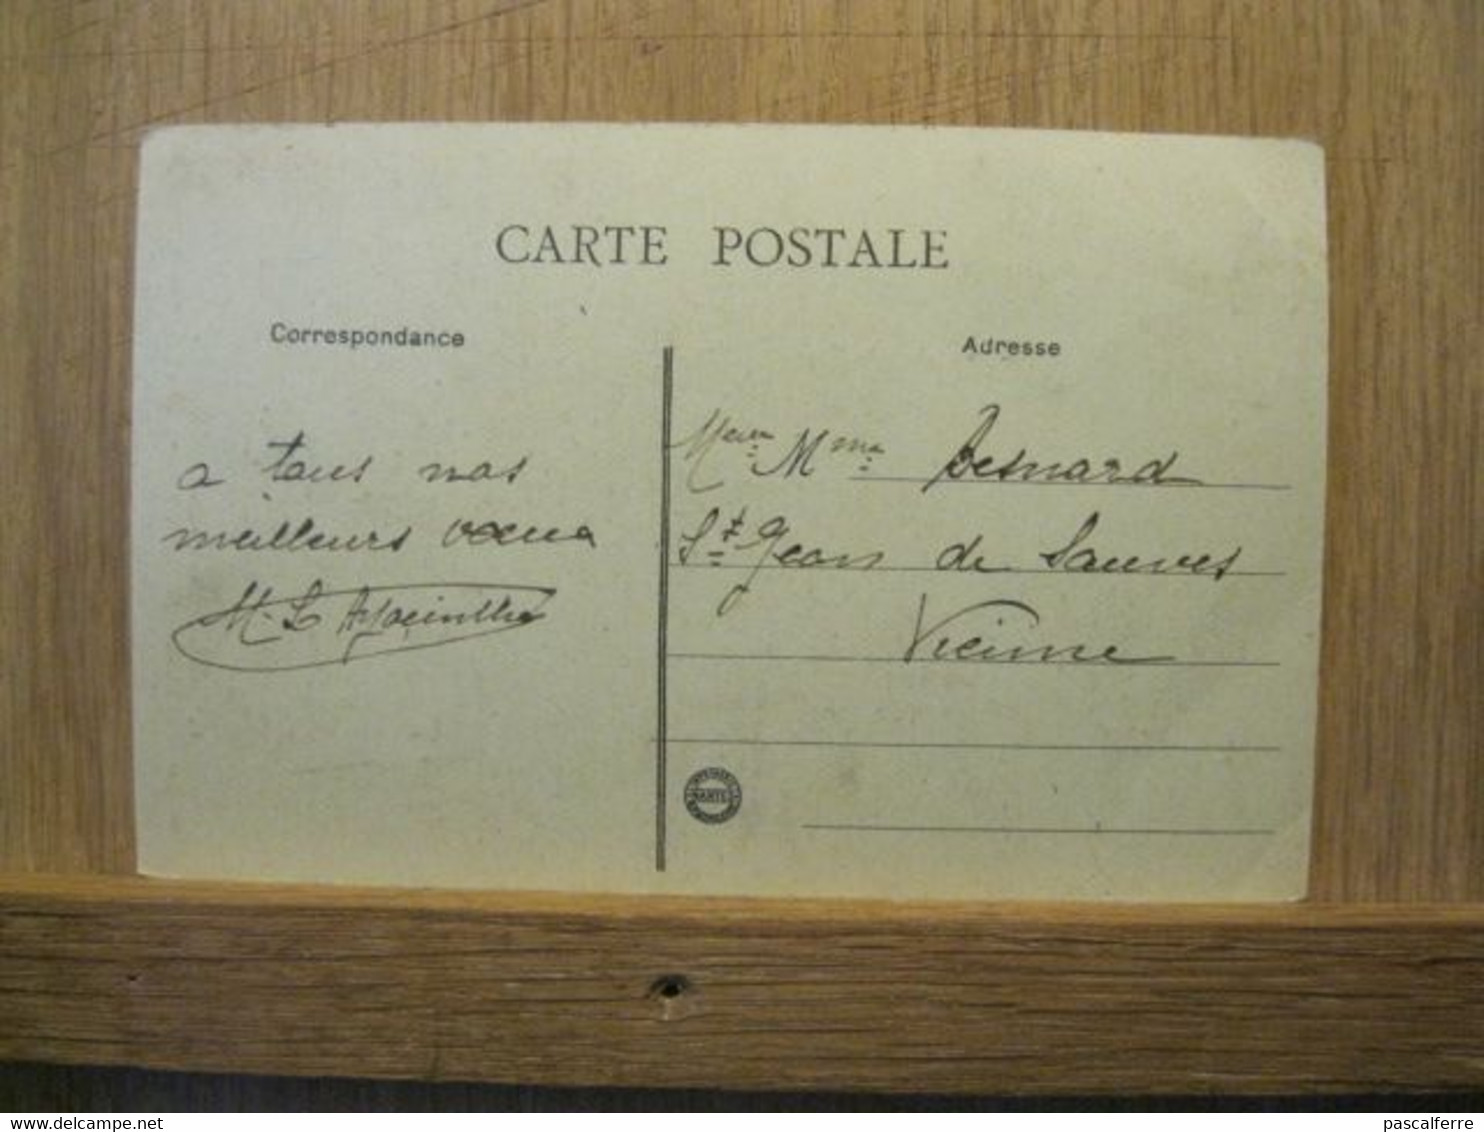 CARTE POSTALE
Correspondance
a tous nos
meilleurs vœux
M. L Hyacinthe
Adresse
Mme Besnard
St Jean de Sauves
Vienne
pascalferre